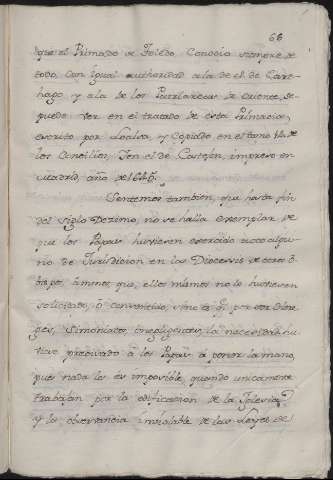 68
que el Primado de Toledo Conocio siempre de
todo, con igual authoridad a la de el de Cart-
hago y a la de los Patriarcas de Oriente, se-
puede ver en el tratado de esta Primacia,
escrito por Loaisa, y Copiado en el tomo 4º de
los Concilios, Y en el de Castejon, impreso en
Madrid, año de 1645.
Sentemos tambien, que hasta fin
del siglo Dezimo, no se halla exemplar de
que los Papas huviesen exercido acto algu-
no de Jurisdicion en las Diocesis de otros O-
bispos, à menos que, ellos mismos no lo huviesen
solicitado, ò consentido, sino es q.e por ser Here
ges, Simoniacos, ò negligentes, la necesidad hu-
viese precisado à los Papas à poner la mano,
pues nada les es imposible, quando unicamente
trabajan por la edificacion de la Iglesia,
y la observancia inviolable de las Leyes de